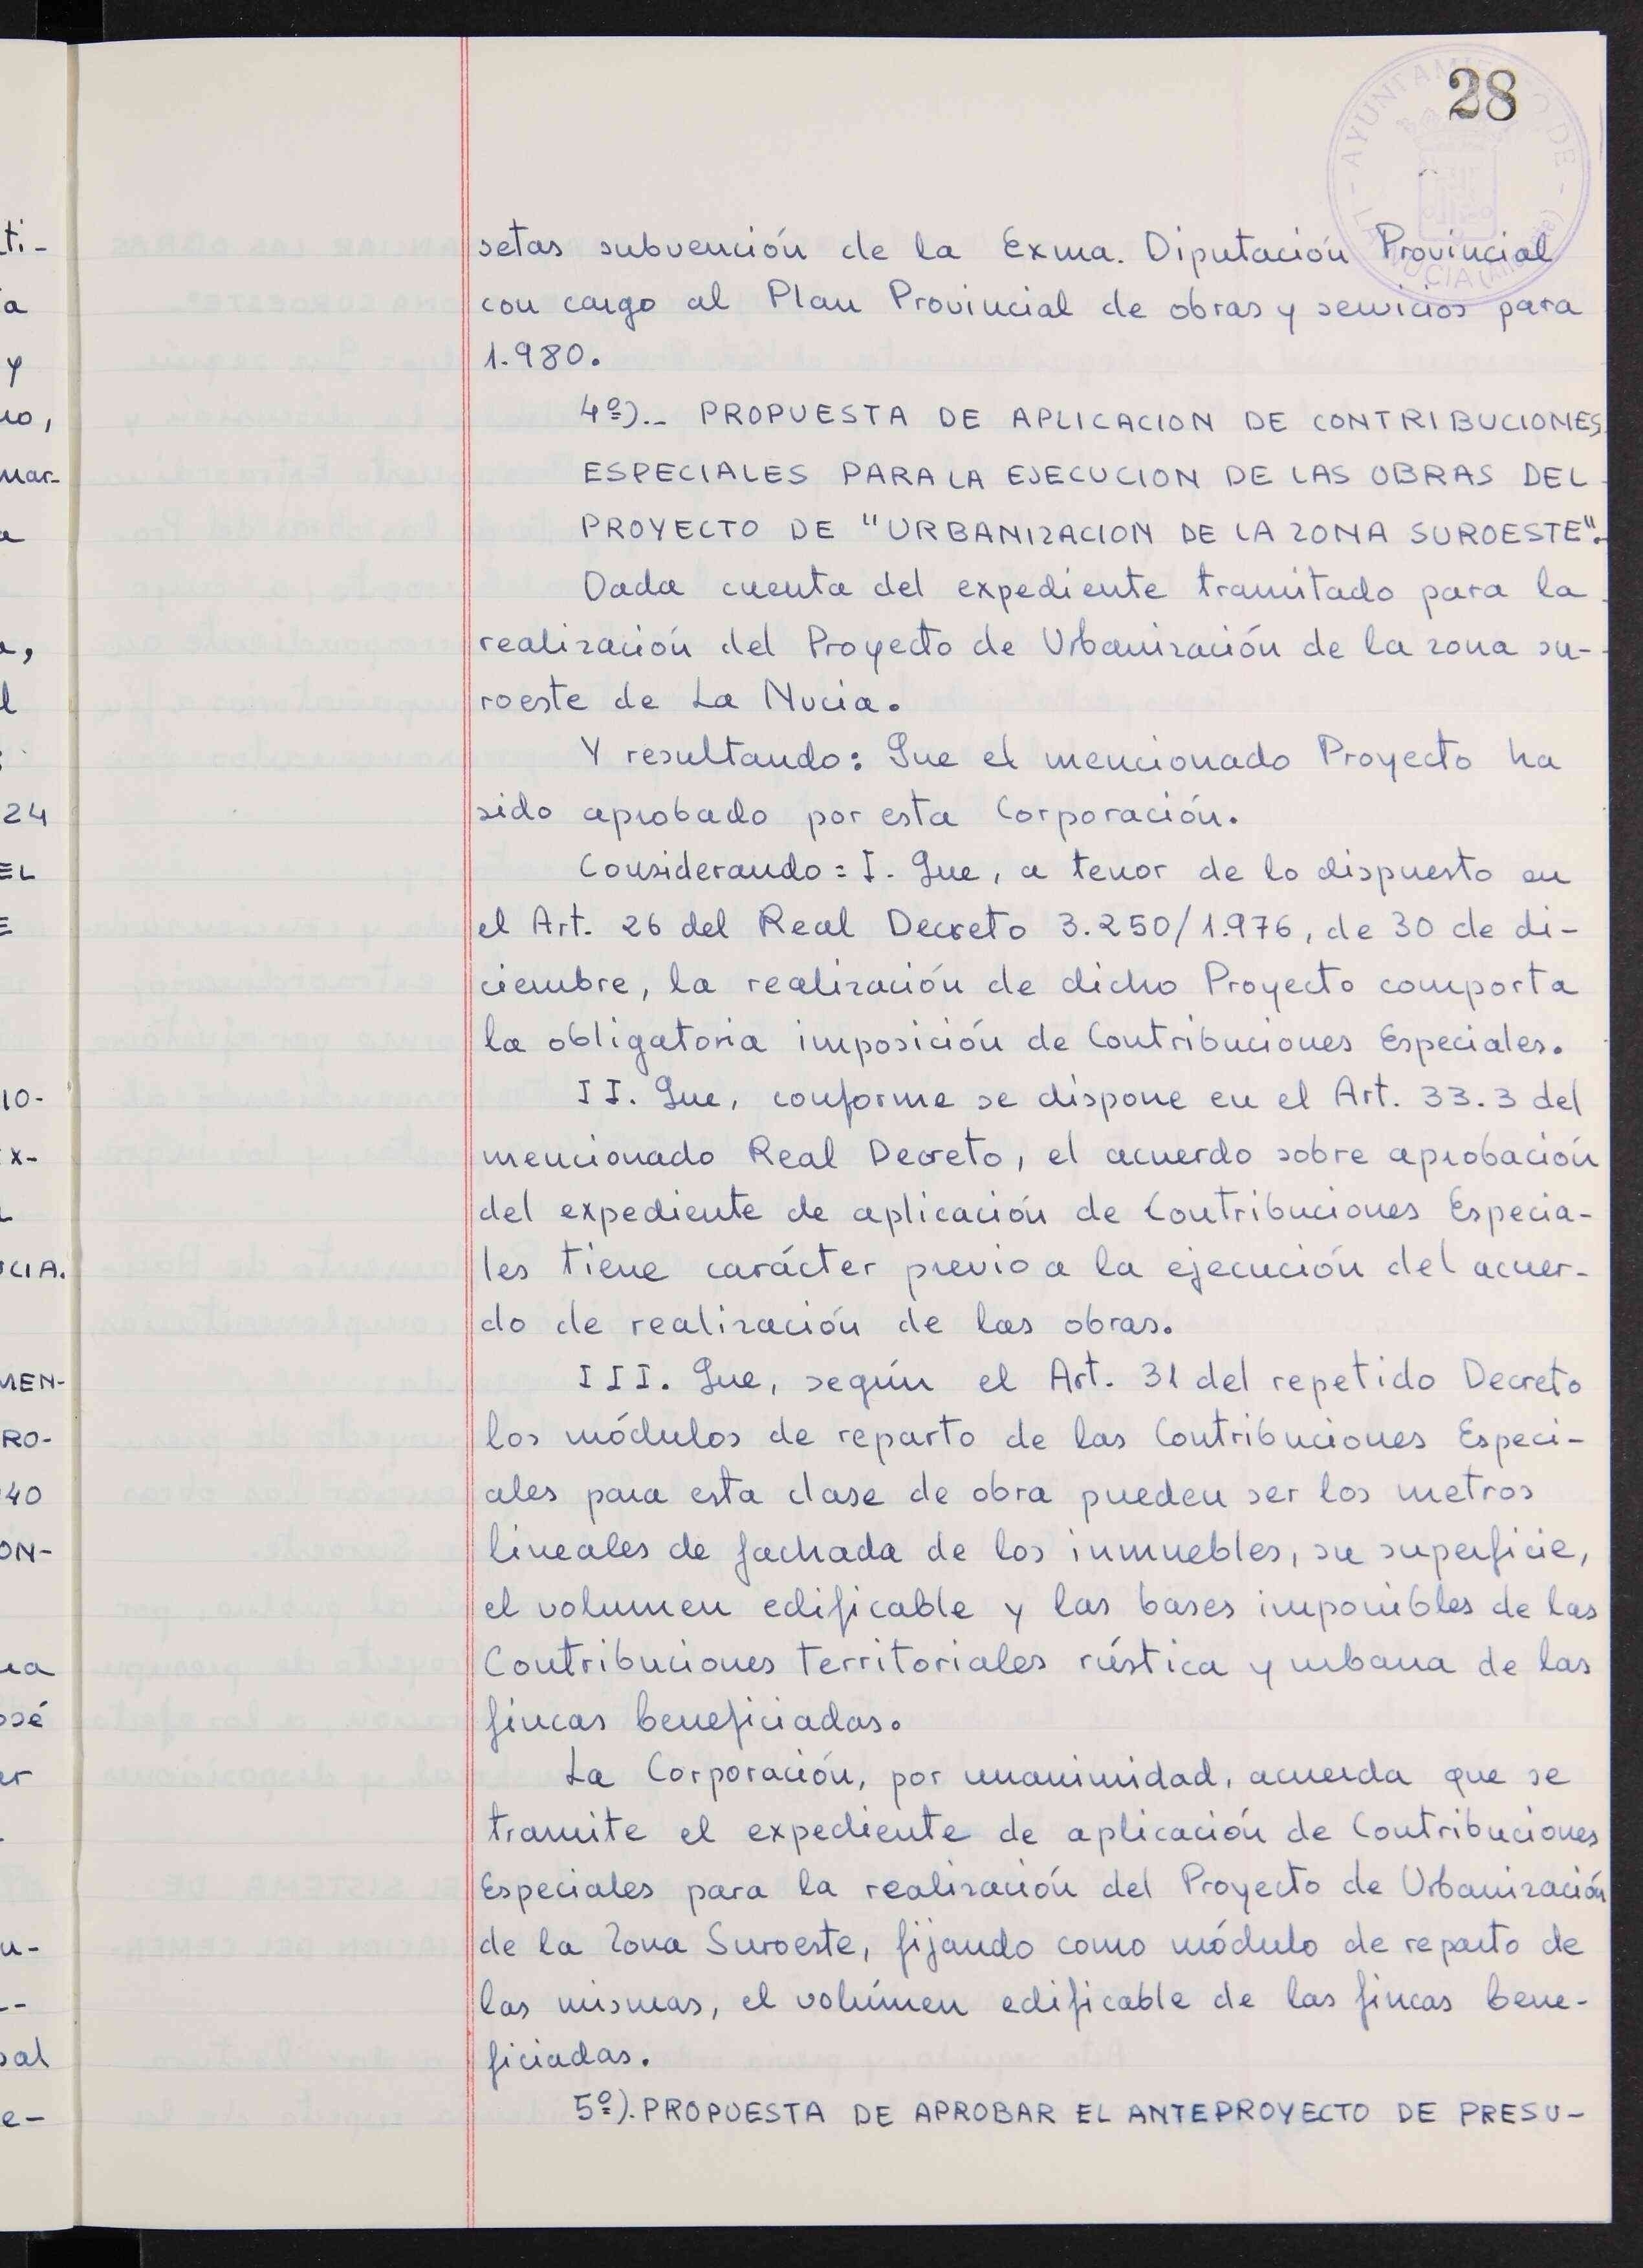 28
AYUNTAMIENTO DE
LA NUCIA (Alicante)
setas subvención de la Exma. Diputación Provincial
con cargo al Plan Provincial de obras y servicios para
1.980.
4º).- PROPUESTA DE APLICACION DE CONTRIBUCIONES
ESPECIALES PARA LA EJECUCION DE LAS OBRAS DEL
PROYECTO DE "URBANIZACION DE LA ZONA SUROESTE".-
Dada cuenta del expediente tramitado para la
realización del Proyecto de Urbanización de la zona su-
roeste de La Nucia.
Y resultando: Que el mencionado Proyecto ha
sido aprobado por esta Corporación.
Considerando: I. Que, a tenor de lo dispuesto en
el Art. 26 del Real Decreto 3.250/1.976, de 30 de di-
ciembre, la realización de dicho Proyecto comporta
la obligatoria imposición de Contribuciones Especiales.
II. Que, conforme se dispone en el Art. 33.3 del
mencionado Real Decreto, el acuerdo sobre aprobación
del expediente de aplicación de Contribuciones Especia-
les tiene carácter previo a la ejecución del acuer-
do de realización de las obras.
III. Que, según el Art. 31 del repetido Decreto
los módulos de reparto de las Contribuciones Especi-
ales para esta clase de obra pueden ser los metros
lineales de fachada de los inmuebles, su superficie,
el volumen edificable y las bases imponibles de las
Contribuciones territoriales rústica y urbana de las
fincas beneficiadas.
La Corporación, por unanimidad, acuerda que se
tramite el expediente de aplicación de Contribuciones
Especiales para la realización del Proyecto de Urbanización
de la Zona Suroeste, fijando como módulo de reparto de
las mismas, el volúmen edificable de las fincas bene-
ficiadas.
5º). PROPUESTA DE APROBAR EL ANTEPROYECTO DE PRESU-